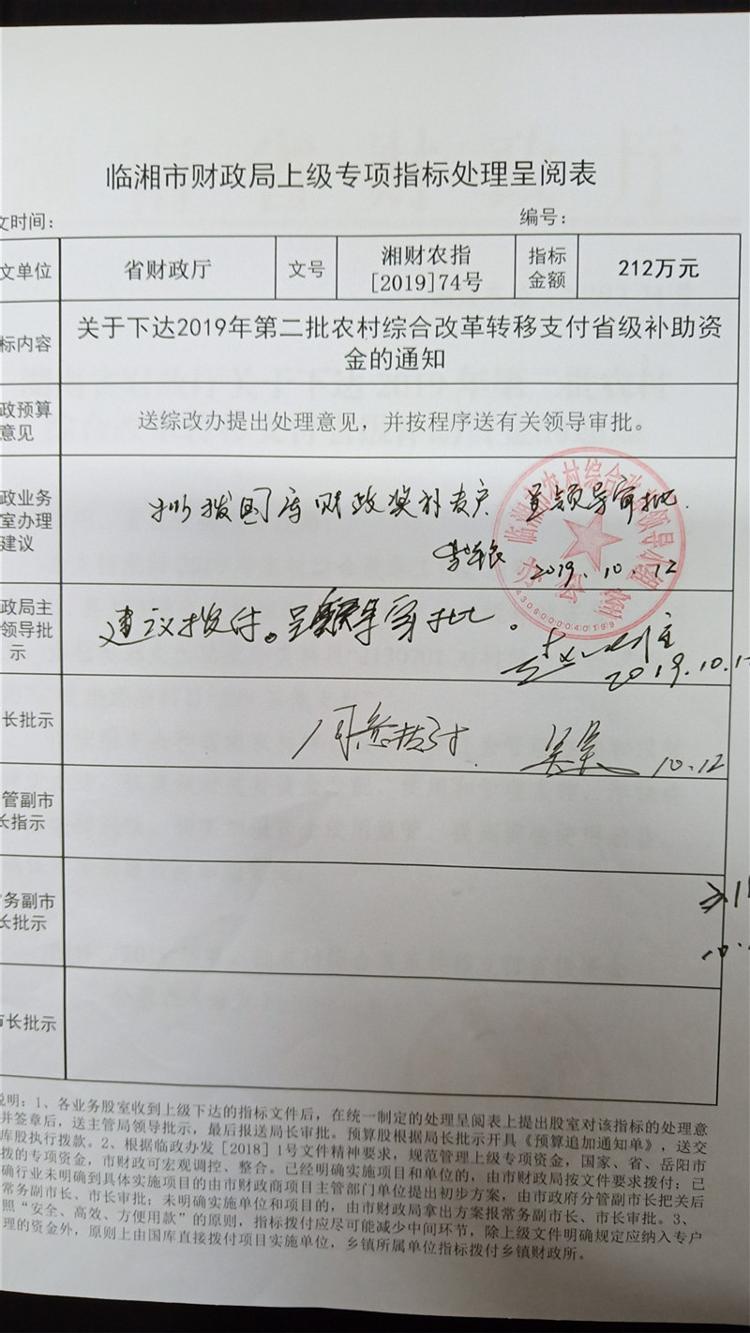 临湘市财政局上级专项指标处理呈阅表
文时间：
编号：
文单位
省财政厅
文号
湘财农指
[2019]74号
指标
金额
212万元
标内容
关于下达2019年第二批农村综合改革转移支付省级补助资
金的通知
政预算
意见
送综改办提出处理意见，并按程序送有关领导审批。
政业务
室办理
建议
拟拨国库财政奖补专户 呈领导审批.
2019.10.12
4306000040199
政局主
领导批
示
建议拨付。呈 审批.
2019.10.1
长批示
同意拨付.
10.12
管副市
长指示
务副市
长批示
10.
市长批示
说明：1、各业务股室收到上级下达的指标文件后，在统一制定的处理呈阅表上提出股室对该指标的处理意
并签章后，送主管局领导批示，最后报送局长审批。预算股根据局长批示开具《预算追加通知单》，送交
库股执行拨款。2、根据临政办发［2018］1号文件精神要求，规范管理上级专项资金，国家、省、岳阳市
拨的专项资金，市财政可宏观调控、整合。已经明确实施项目和单位的，由市财政局按文件要求拨付；已
确行业未明确到具体实施项目的由市财政商项目主管部门单位提出初步方案，由市政府分管副市长把关后
常务副市长、市长审批；未明确实施单位和项目的，由市财政局拿出方案报常务副市长、市长审批。3、
照“安全、高效、方便用款”的原则，指标拨付应尽可能减少中间环节，除上级文件明确规定应纳入专户
理的资金外，原则上由国库直接拨付项目实施单位，乡镇所属单位指标拨付乡镇财政所。